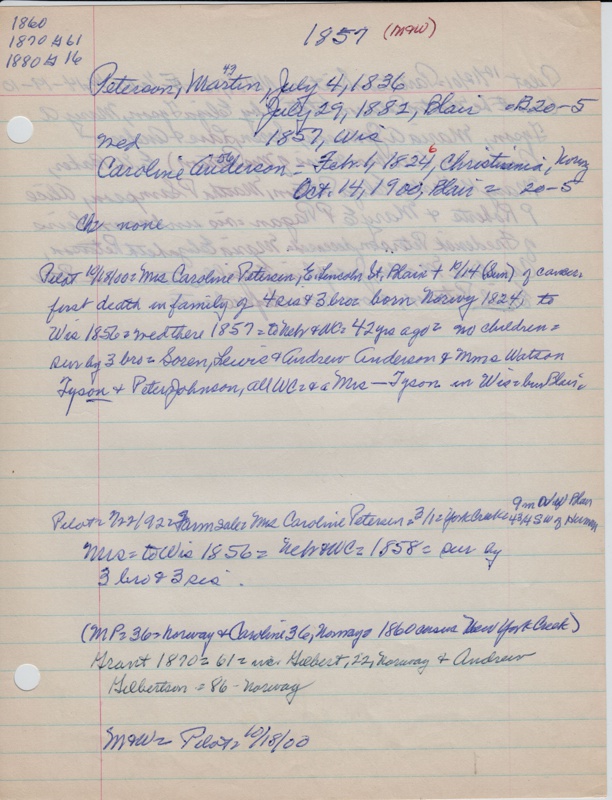 1860
1870 # 61
1880 # 16
1857 (M&W)
Peterson, Martin, 49 July 4, 1836
July 29, 1882, Blair = B20-5
wed 1857, Wis
Caroline Anderson 54 = Feb. 1, 1824, 6 Christiania, Norwy
Oct. 14, 1900, Blair = 20-5
Ch: none
Pilot 10/18/00 = Mrs Caroline Peterson, E. Lincoln St, Blair + 10/14 (Sun) of cancer
first death in family of 4 sis & 3 bro = born Norwy 1824, to
Wis 1856 = wed there 1857 = to Nebr & WC = 42 yrs ago = no children =
sur by 3 bro = Soren, Lewis & Andrew Anderson & Mmes Watson
Tyson & Peter Johnson, all WC = & a Mrs — Tyson in Wis = bur Blair.
Pilot = 7/22/92 = Farm sale = Mrs Caroline Peterson = 3/1 = York Creek = 9 m NW Blair
4 3/4 SW of Herman
Mrs = to Wis 1856 = Nebr & WC = 1858 = sur by
3 bro & 3 sis.
(MP = 36 = Norway & Caroline 36, Norway = 1860 census New York Creek)
Grant 1870 = 61 = w. Gilbert, 22, Norway & Andrew
Gilbertson = 86 - Norway
M&W = Pilot = 10/18/00